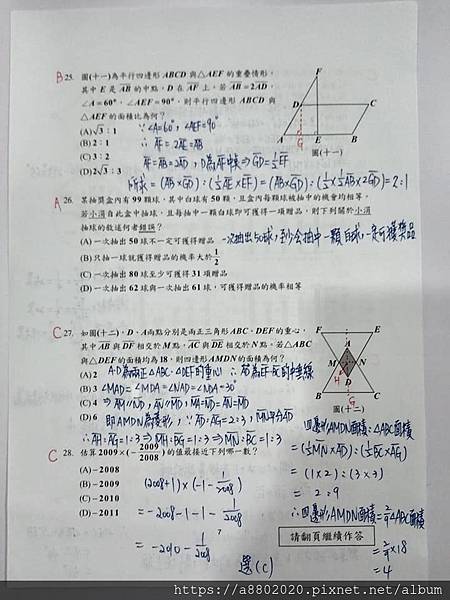 B 25. 圖(十一)為平行四邊形 ABCD 與△AEF 的重疊情形,
其中 E 是 AB 的中點, D 在 AF 上。若 AB=2AD,
∠A=60°, ∠AEF=90°, 則平行四邊形 ABCD 與
△AEF 的面積比為何?
(A)√3:1 ∵∠A=60°, ∠AEF=90°
(B)2:1 ∴ AF=2AE=AB
(C)3:2 AF=AB=2AD, D為AF中點⇒GD=1/2EF
(D)2√3:3
所求=(AB×GD):(1/2AE×EF)=(AB×GD):(1/2×1/2AB×2GD)=2:1
F
D C
A G E B
圖(十一)
A 26. 某抽獎盒內有 99 顆球, 其中白球有 50 顆, 且盒內每顆球被抽中的機會均相等。
若小滿自此盒中抽球, 且每抽中一顆白球即可獲得一項贈品, 則下列關於小滿
抽球的敘述何者錯誤?
(A)一次抽出 50 球不一定可獲得贈品 一次抽出50球,至少會抽中一顆白球,一定可獲獎品
(B)只抽一球就獲得贈品的機率大於1/2
(C)一次抽出 80 球至少可獲得 31 項贈品
(D)一次抽出 62 球與一次抽出 61 球, 可獲得贈品的機率相等
C 27. 如圖(十二), D、A 兩點分別是兩正三角形 ABC、DEF 的重心,
其中 AB 與 DF 相交於 M 點, AC 與 DE 相交於 N 點。若△ABC
與△DEF 的面積均為 18, 則四邊形 AMDN 的面積為何?
(A)2
(B)3 ∠MAD=∠MDA=∠NAD=∠NDA=30°
(C)4
(D)6 即AMDN為菱形, ∵AD:AG=2:3, MN平分AD
∴AH:AG=1:3⇒MH:BG=1:3⇒MN:BC=1:3
F E
A
M N
H
D
B G C
圖(十二)
四邊形AMDN面積:△ABC面積
=(1/2MN×AD):(1/2BC×AG)
=(1×2):(3×3)
=2:9
∴四邊形AMDN面積=2/9△ABC面積
=2/9×18
=4
C 28. 估算 2009×(-2009/2008) 的值最接近下列哪一數?
(A)-2008
(B)-2009
(C)-2010
(D)-2011
(2008+1)×(-1-1/2008)
=-2008-1-1-1/2008
=-2010-1/2008
選(C)
7
請翻頁繼續作答
https://a8802020.pixnet.net/album